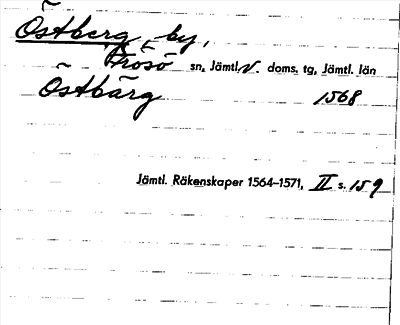 Östberg, by,
Frösö sn, Jämtl. v. doms. tg, Jämtl. län
Östbärg 1568
Jämtl. Räkenskaper 1564–1571, II s. 159